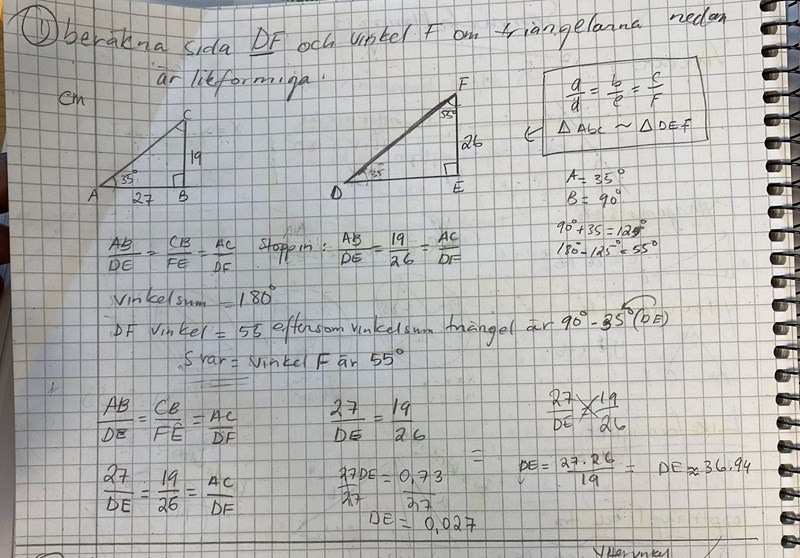 1) beräkna sida DF och vinkel F om triangelarna nedan
är likformiga.
cm
C
19
A 35° 27 B
F
55°
26
D 35 E
a/d = b/e = c/F
△ Abc ~ △ DEF
A = 35°
B = 90°
90° + 35 = 125°
180° - 125° = 55°
AB/DE = CB/FE = AC/DF Stoppin: AB/DE = 19/26 = AC/DF
Vinkelsum = 180°
DF vinkel = 55 eftersom vinkelsum triangel är 90° - 35° (DE)
Svar = vinkel F är 55°
AB/DE = CB/FE = AC/DF
27/DE = 19/26 = AC/DF
27/DE = 19/26
27DE/27 = 0,73/27
DE = 0,027
=
27/DE = 19/26
DE = 27·26/19 = DE ≈ 36.94